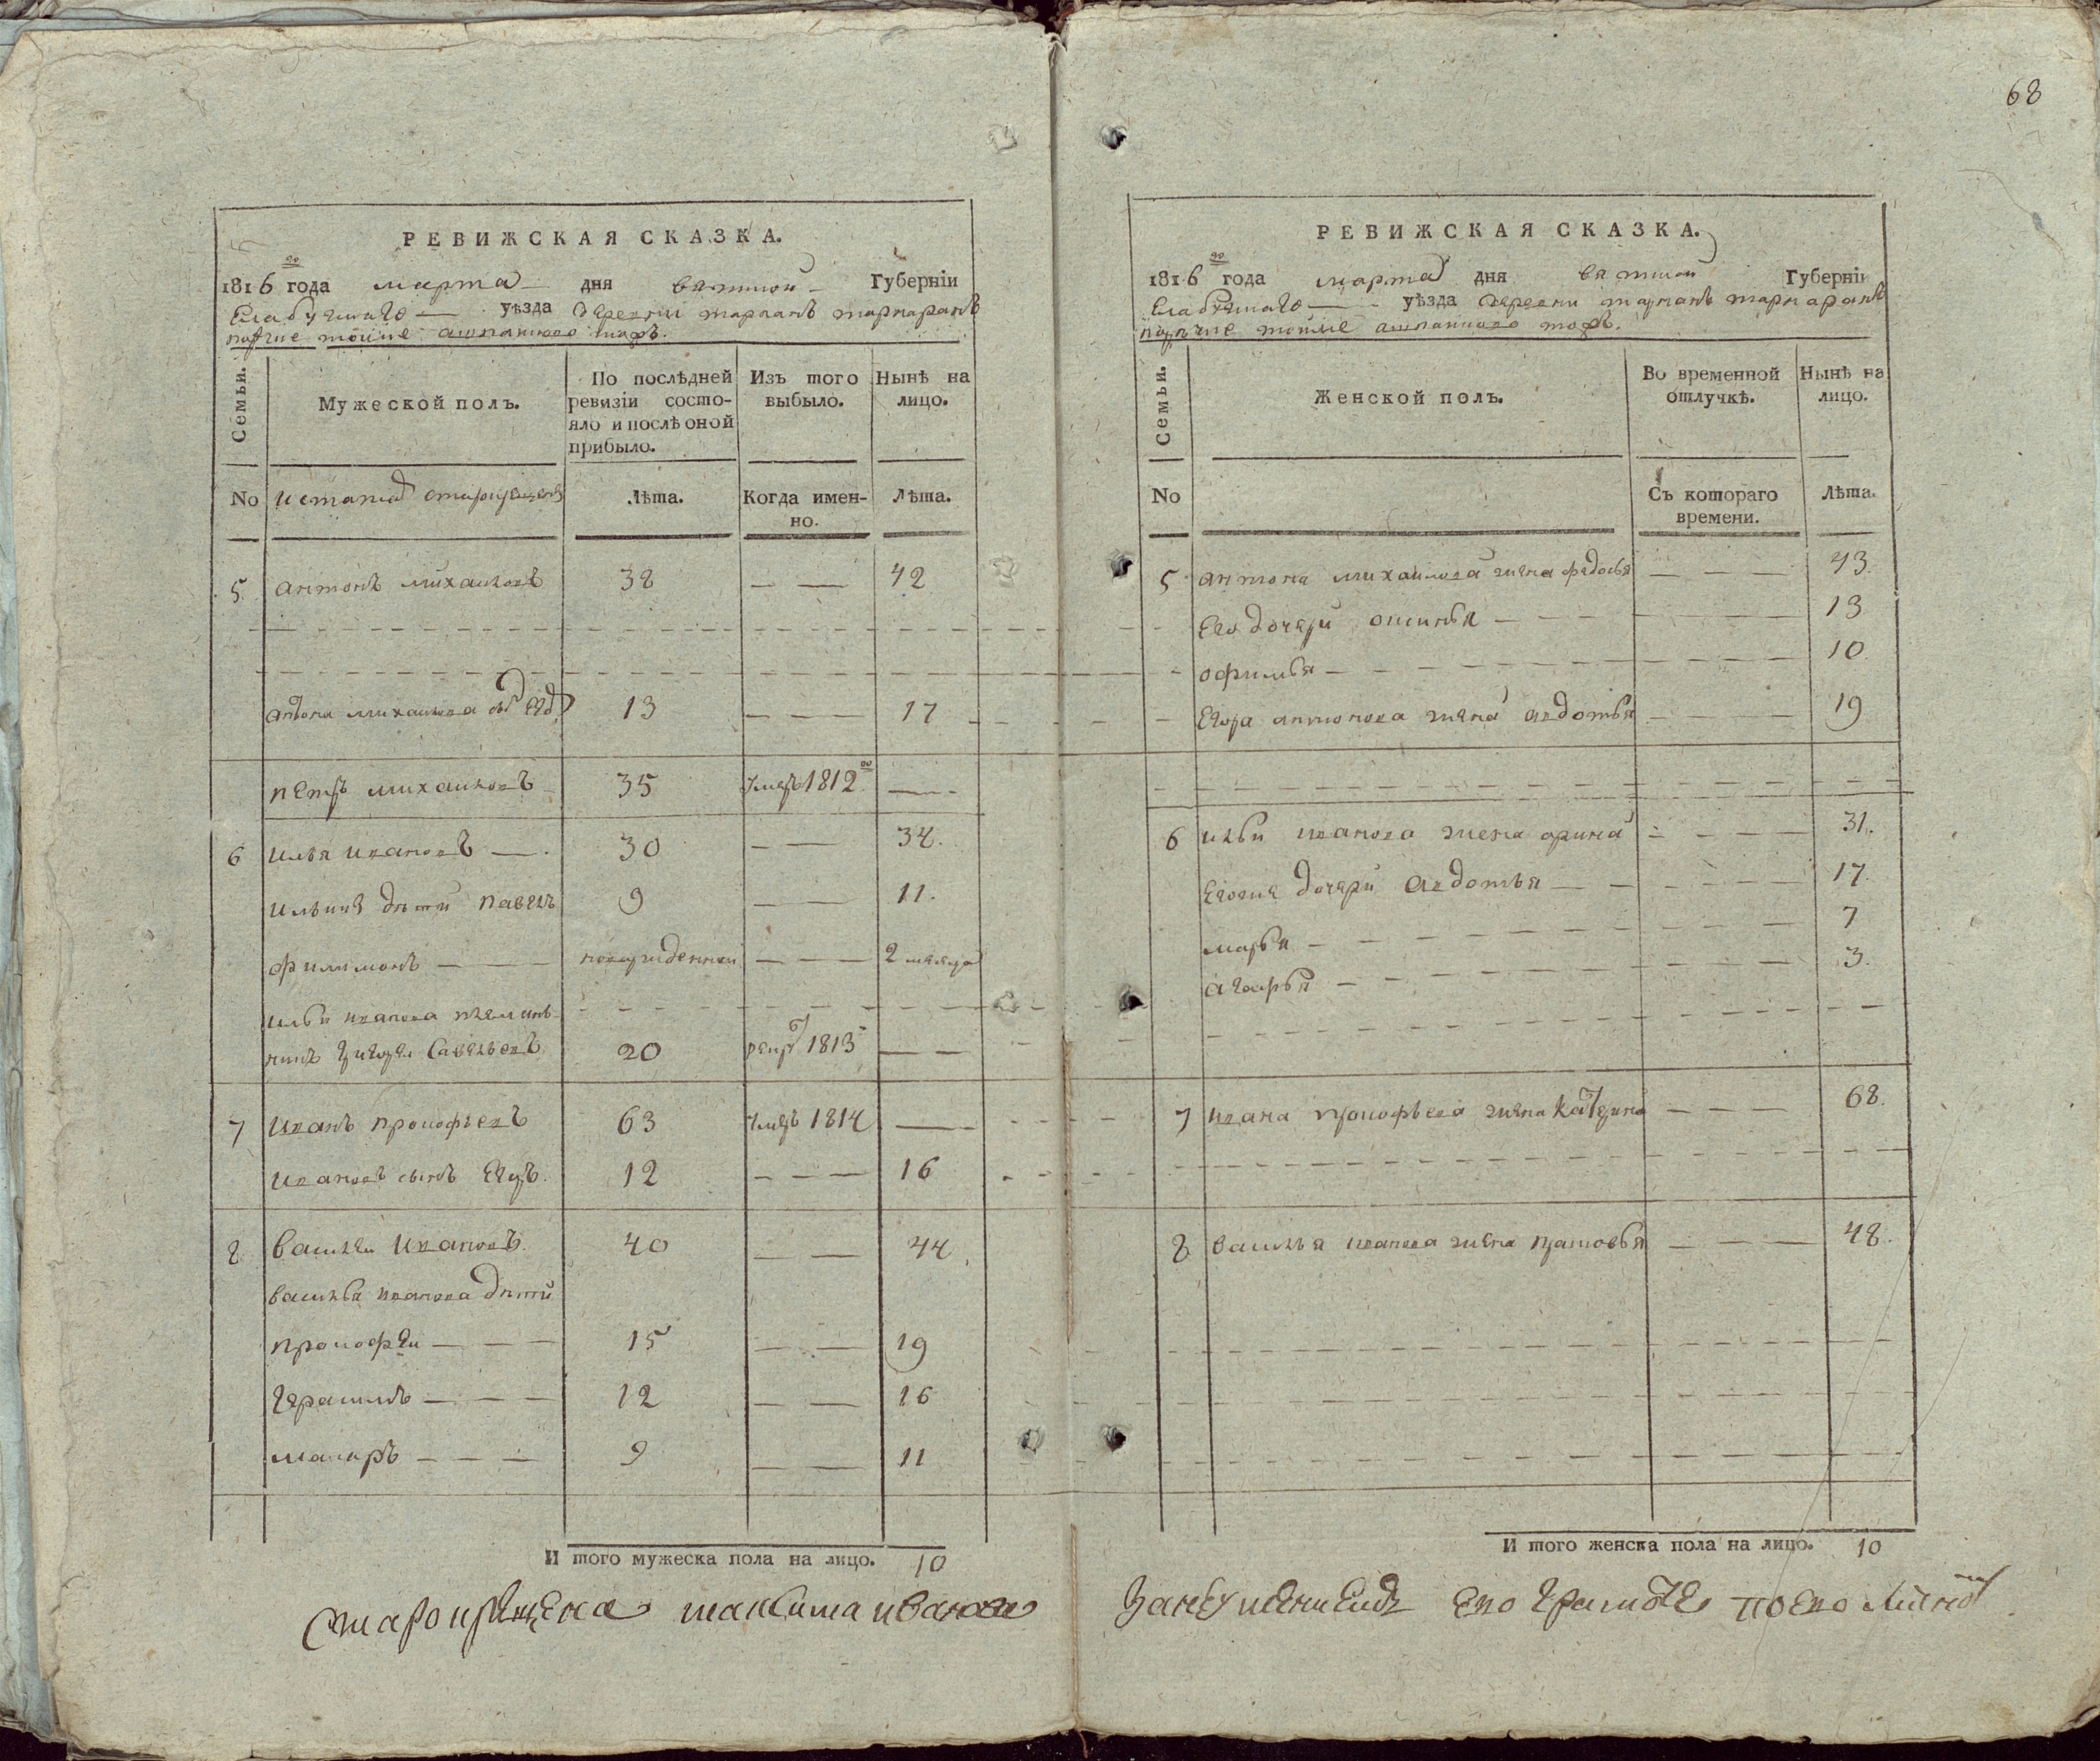 РЕВИЖСКАЯ СКАЗКА.
1816 го года марта дня вятской Губерніи
Елабужскаго уѣзда деревни
Семьи.
Мужеской полъ.
По послѣдней ревизіи состо-
яло и послѣ оной
прибыло.
Изъ того
выбыло.
Нынѣ на
лицо.
No
Лѣта.
Когда имен-
но.
Лѣта.
5 антонъ михаиловъ 38 42
антона михаилова 13 17
петръ михаиловъ 35 умеръ 1812 го
6 илья ивановъ 30 34.
ильины дѣти павелъ 9 11.
филимонъ новорожденной 2 месяца
ильи иванова племян-
никъ григореи савельевъ 20 рекрут 1813
7 иванъ прокофьевъ 63 умеръ 1814
ивановъ сынъ Егоръ. 12 16
8 василеи ивановъ. 40 44
василья иванова дѣти
прокофеи 15 19
герасимъ 12 16
макаръ 9 11
И того мужеска пола на лицо. 10
68
РЕВИЖСКАЯ СКАЗКА.
1816 го года марта дня вятской Губерніи
Елабужскаго уѣзда деревни
Семьи.
Женской полъ.
Во временной
отлучкѣ.
Нынѣ на
лицо.
No
Съ котораго
времени.
Лѣта.
5 антона михаилова жена федосья 43.
Его дочери 13
офимья 10.
Егора антонова жена авдотья 19
6 ильи иванова жена орина 31.
дочери авдотья 17.
марья 7
3.
7 ивана прокофьева жена катерина 68.
8 василья иванова жена 48.
И того женска пола на лицо. 10
максима иванова